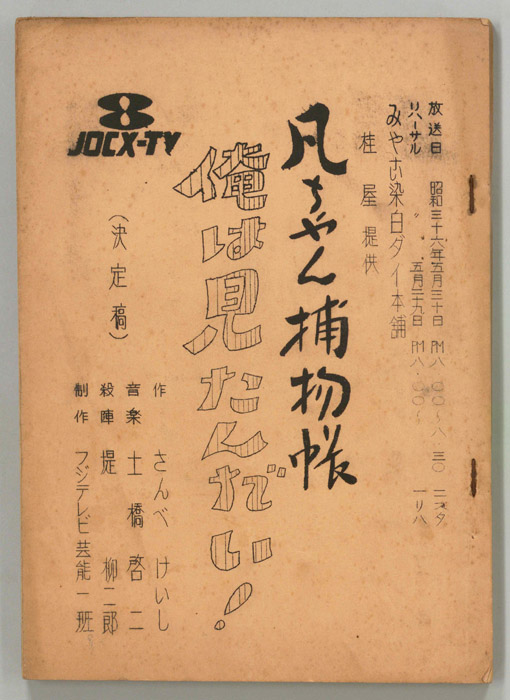 放送日 昭和三十六年五月三十日 PM八.〇〇〜八.三〇
リハーサル 〃 五月二十九日 PM八.〇〇〜
みやこ染白ダイ本舗
桂屋提供
凡ちゃん捕物帳
俺は見たんだい!
8
JOCX-TV
(決定稿)
作 さんべ けいし
音楽 土橋 啓二
殺陣 堤 柳二郎
制作 フジテレビ芸能一班